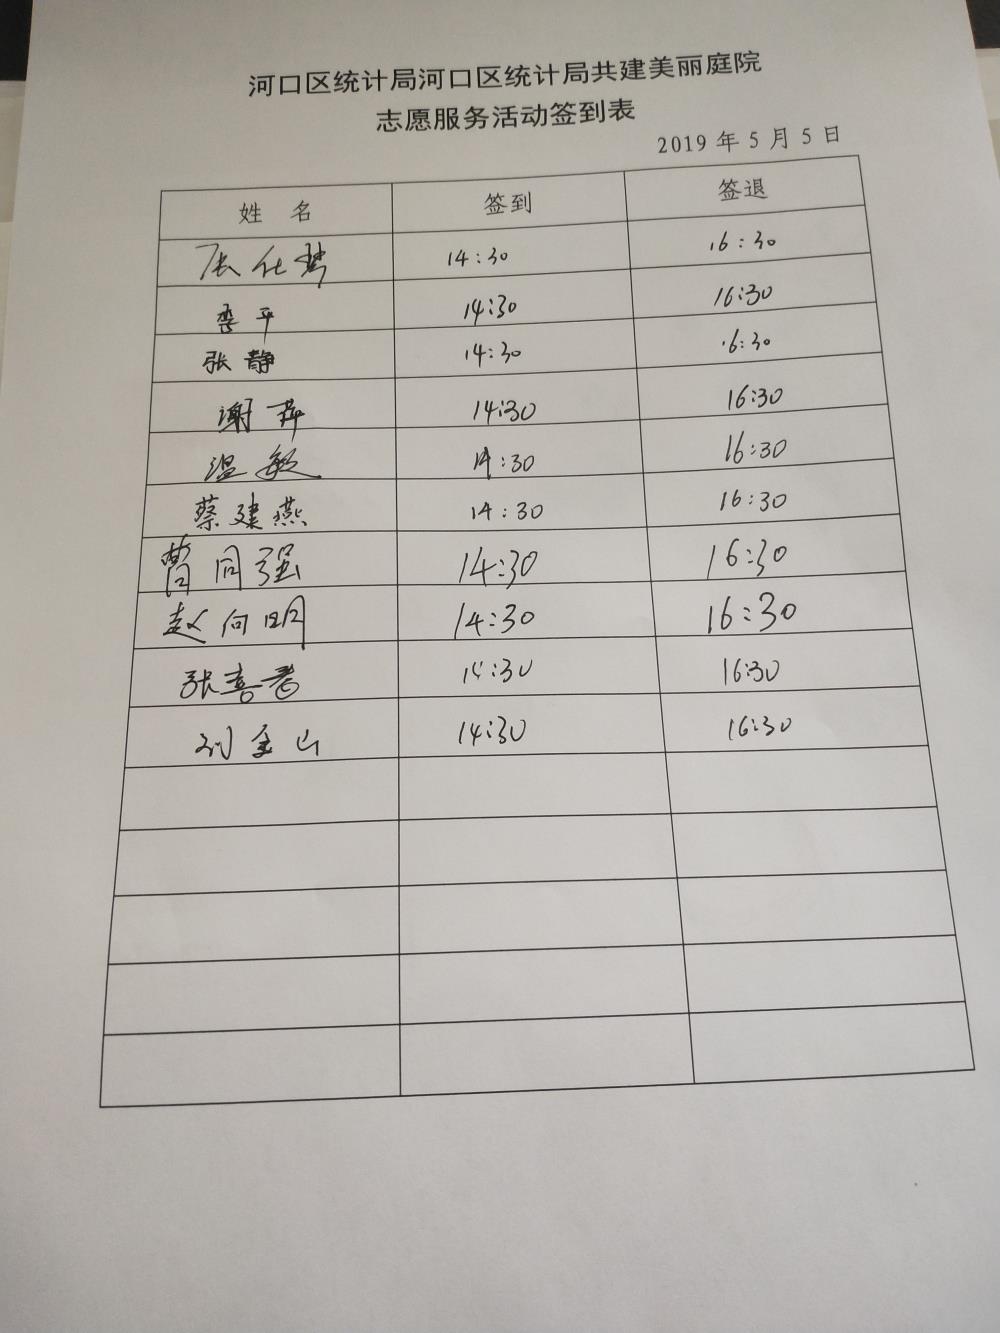 河口区统计局河口区统计局共建美丽庭院
志愿服务活动签到表
2019 年 5 月 5 日
姓 名 签到 签退
14:30 16:30
平 14:30 16:30
张静 14:30 16:30
谢萍 14:30 16:30
温敏 14:30 16:30
蔡建燕 14:30 16:30
曹同强 14:30 16:30
赵向明 14:30 16:30
张喜 14:30 16:30
刘金山 14:30 16:30